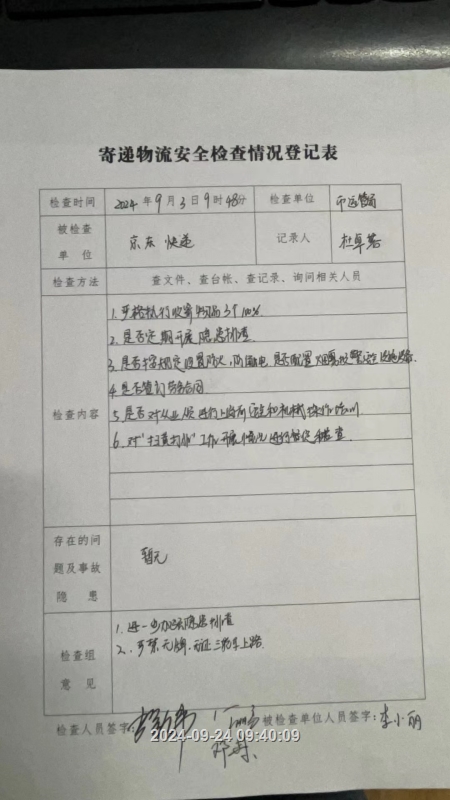 寄递物流安全检查情况登记表
检查时间 2024年9月3日9时48分 检查单位 市运管局
被检查单位 京东快递 记录人 杜卓
检查方法 查文件、查台帐、查记录、询问相关人员
检查内容
1.严格执行收寄物品3个100%
2.是否定期开展隐患排查
3.是否按规定设置防火,防漏电,是否配置
4.是否签订劳务合同
5.是否对从业人员进行上岗前安全和机械操作培训
6.对"扫黄打非"工作开展情况进行督促检查
存在的问题及事故隐患 暂无
检查组意见
1.进一步加强隐患排查
2.严禁无牌.无证三轮车上路
检查人员签字: 被检查单位人员签字:李小丽
2024-09-24 09:40:09